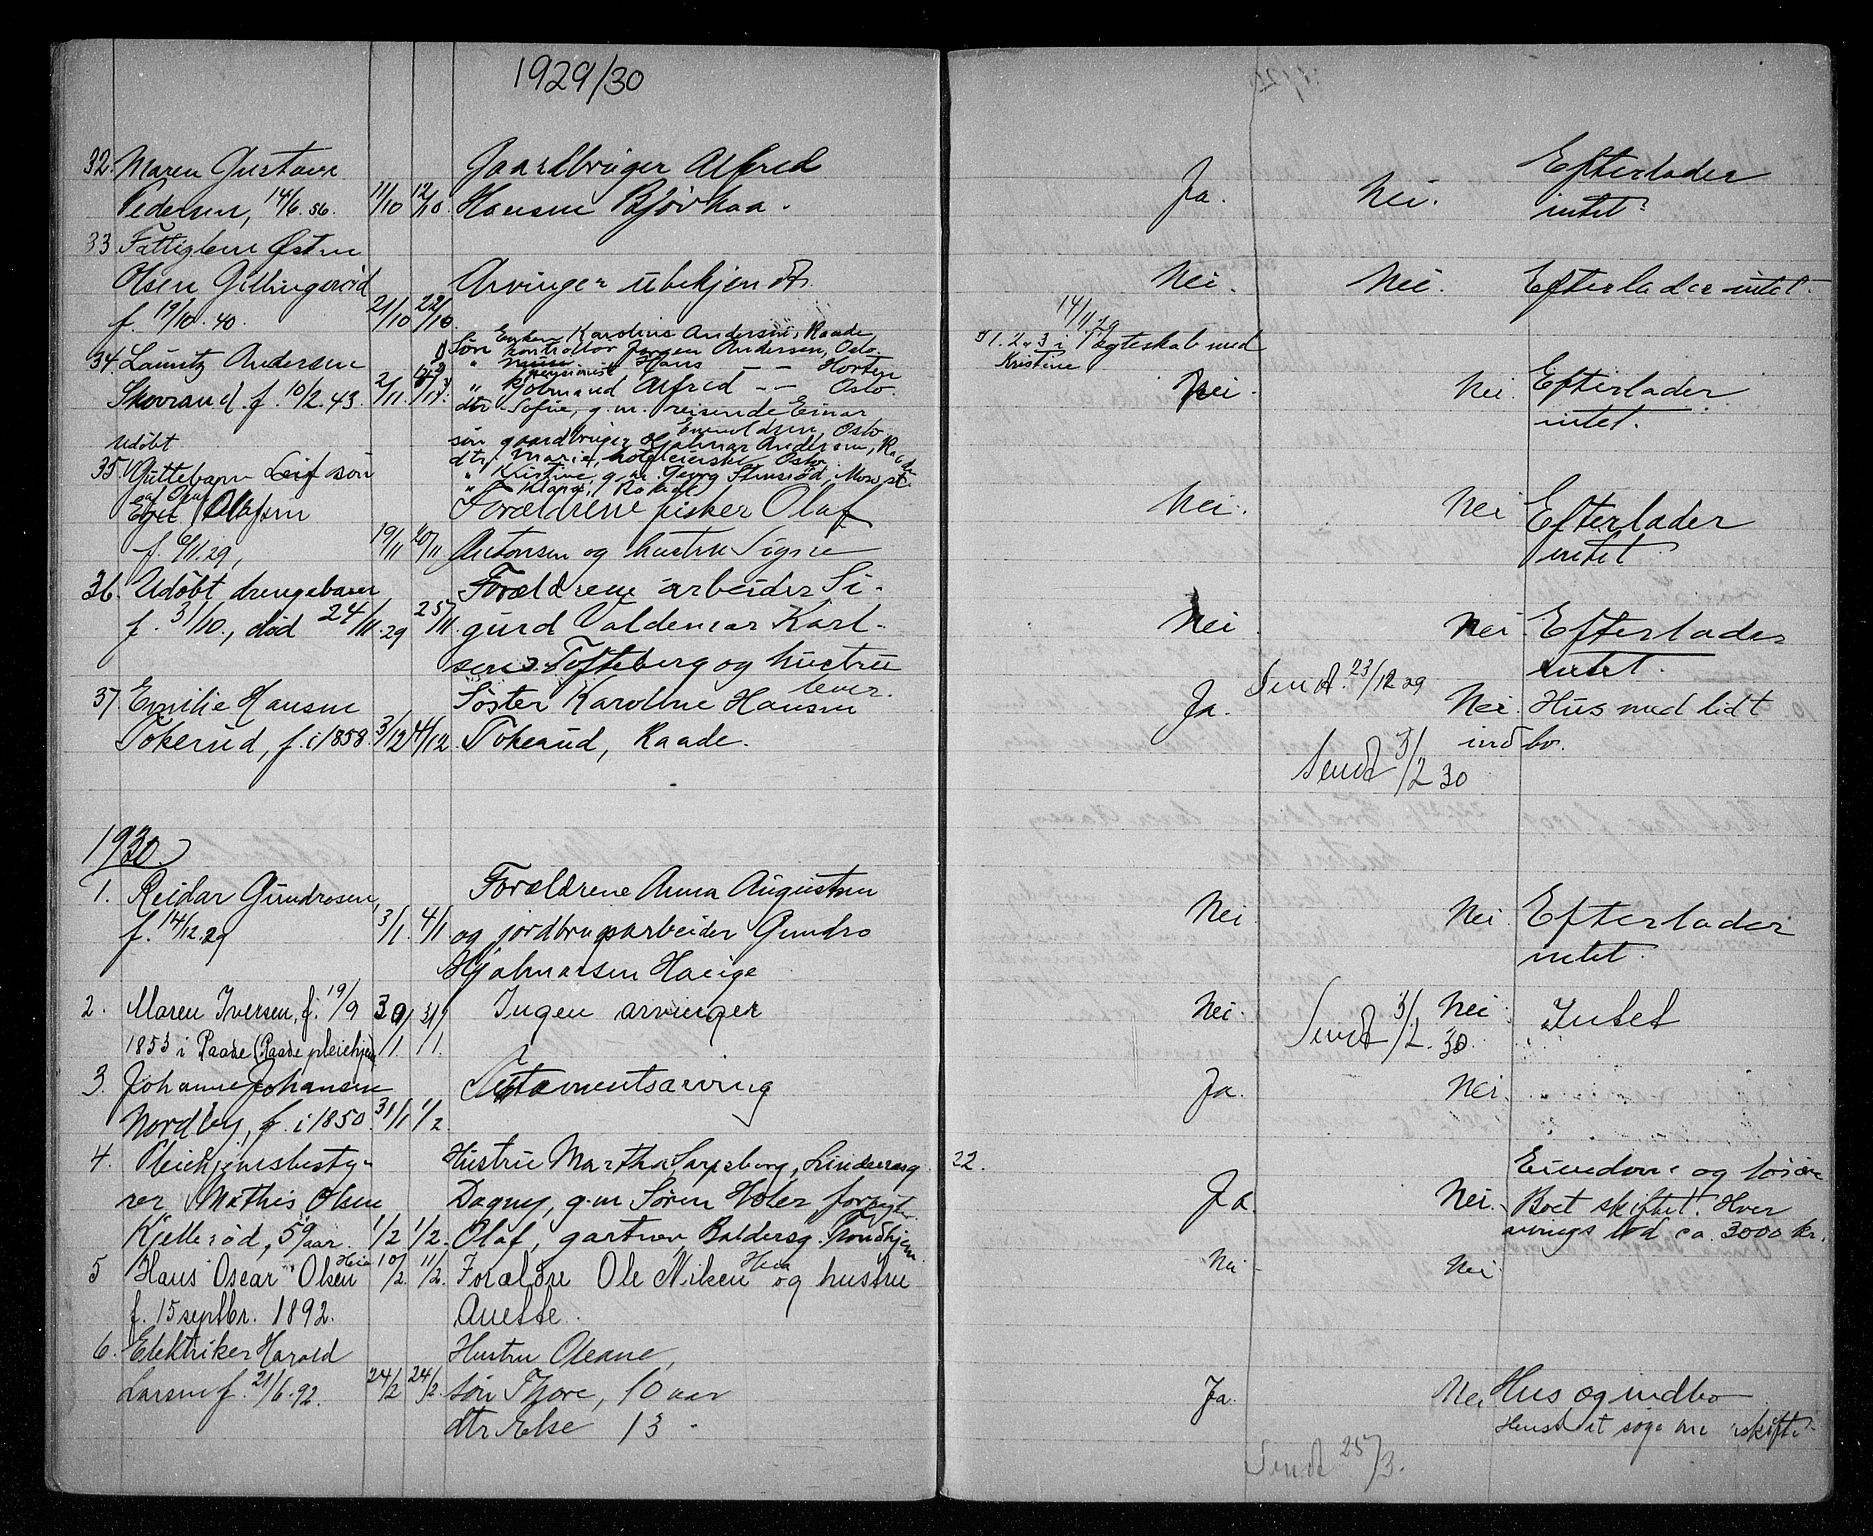 1929/30
32. Maren Gustava
Pedersen, 14/6. 56. 11/10 12/10
Gaardbruger Alfred
Hansen Bjørkaa.
Ja. Nei. Efterlader
intet.
33 Fattiglem Østen
Olsen Gillingsrød
f. 19/10. 40. 21/10 22/10.
Arvinger ubekjendt.
Nei. Nei. Efterlader intet.
34. Lauritz Andersen
Skovrand f. 10/2. 43. 2/11.
Enken Karoline Andersen, Raade
1) Søn kontrollør Jørgen Andersen, Oslo
" pensionist Hans — — Horten
" Alfred — — Oslo.
dtr. Sofie, g.m. reisende Einar
Enevoldsen, Oslo
søn gaardbruger Hjalmar Andersen, Raade
dtr. Marie, Oslo
" Kristine, g.m. Georg Stensrød, Moss
" Klara,
14/11.29
1. 2 3 i ægteskab med
Kristine
Nei. Nei. Efterlader
intet.
udøbt
35. Guttebarn Leif søn
af Olaf
Olafsen
f. 6/11 29, 19/11 20/11
Forældrene fisker Olaf
Antonsen og hustru Signe
Nei. Nei Efterlader
intet.
36. Udøbt drengebarn
f. 31/10., død 24/11. 29 25/11.
Forældrene arbeider Si-
gurd Valdemar Karl-
sen Tofteberg og hustru
lever.
Nei. Nei. Efterlader
intet.
Sendt. 23/12 29
37. Emilie Hansen
Tokerud, f. i 1858 3/12 4/12.
Søster Karoline Hansen
Tokerud, Raade.
Ja. Nei. Hus med lidt
indbo.
Sendt 3/2 30
1930
1. Reidar Gundrosen,
f. 14/12 29 3/1. 4/1.
Forældrene Anna Augustsen
og jordbrugsarbeider Gundro
Hjalmarsen Hauge
Nei Nei Efterlader
intet.
2. Maren Iversen, f. 19/9
1853 i Raade (Raade pleiehjem 30/1. 31/1.
Ingen arvinger
Nei. Nei. Intet
Sendt 3/2. 30
3. Johanne Johansen
Nordby, f. i 1850. 31/1 1/2
Testamentsarving
Ja. Nei.
4. Pleiehjemsbesty-
rer Mathis Olsen
Kjellerød, 59 aar. 1/2 1/2.
Hustru Martha, Sarpsborg,
Dagny, g.m Søren Holer
Olaf, gartner, Trondhjem
22.
Ja Nei. Eiendom og løsøre
Boet skiftet. Hver
arvings lod ca. 3000 kr.
5 Hans Oscar Olsen Heia 10/2 11/2.
f. 15 septbr. 1892.
Forældre Ole Nilsen Heia og hustru
Anette.
Nei Nei
6. Elektriker Harald
Larsen f. 21/6. 92. 24/2 24/2.
Hustru Oleane,
søn Thore, 10 aar
dtr Else 13 -
Ja. Nei Hus og indbo
Sendt 25/3.